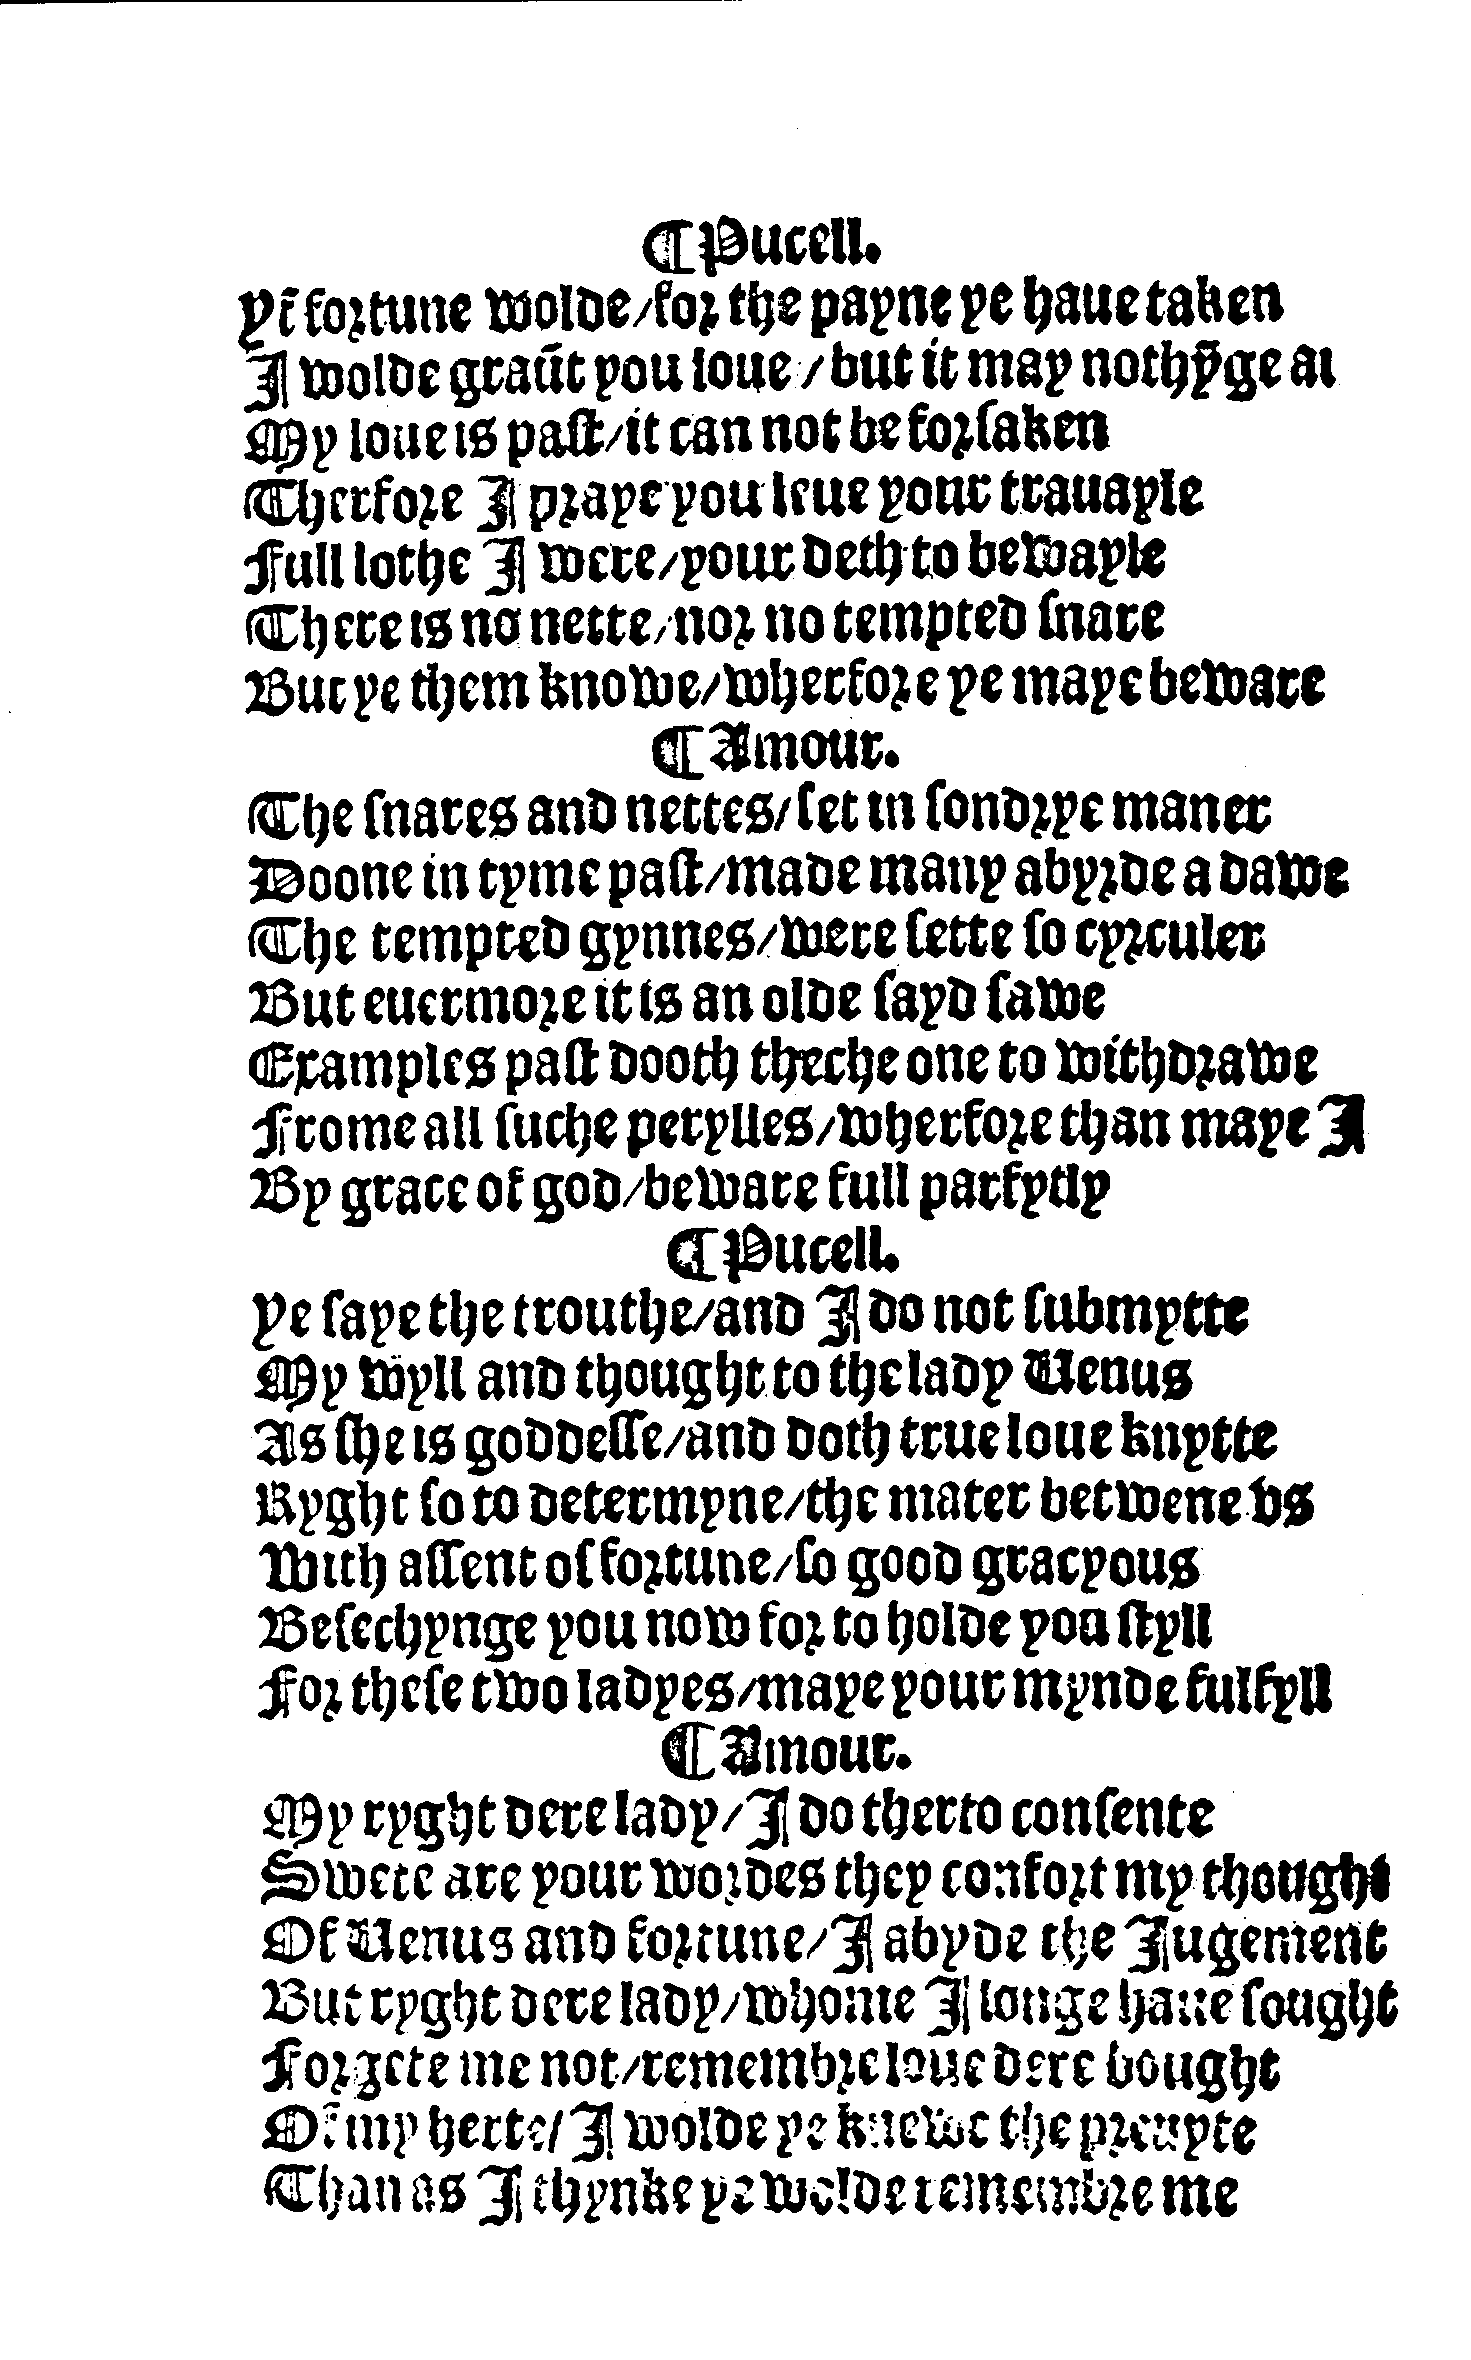 ¶Pucell.
Yf fortune wolde/for the payne ye haue taken
I wolde graūt you loue/but it may nothȳge
My loue is past/it can not be forsaken
Therfore I praye you leue your trauayle
Full lothe I were/your deth to bewayle
There is no nette/nor no tempted snare
But ye them knowe/wherfore ye maye beware
¶Amour.
The snares and nettes/set in sondrye maner
Doone in tyme past/made many abyrde a dawe
The tempted gynnes/were sette so cyrculer
But euermore it is an olde sayd sawe
Examples past dooth theche one to withdrawe
Frome all suche perylles/wherfore than maye I
By grace of god/beware full parfytly
¶Pucell.
Ye saye the trouthe/and I do not submytte
My wyll and thought to the lady Uenus
As she is goddesse/and doth true loue knytte
Ryght so to determyne/the mater betwene vs
With assent of fortune/so good gracyous
Besechynge you now for to holde you styll
For these two ladyes/maye your mynde fulfyll
¶Amour.
My ryght dere lady/I do therto consente
Swete are your wordes they confort my thought
Of Uenus and fortune/I abyde the Jugement
But ryght dere lady/whome I longe haue sought
Forgete me not/remembre loue dere bought
Of my herte/I wolde ye knewe the preuyte
Than as I thynke ye wolde remembre me